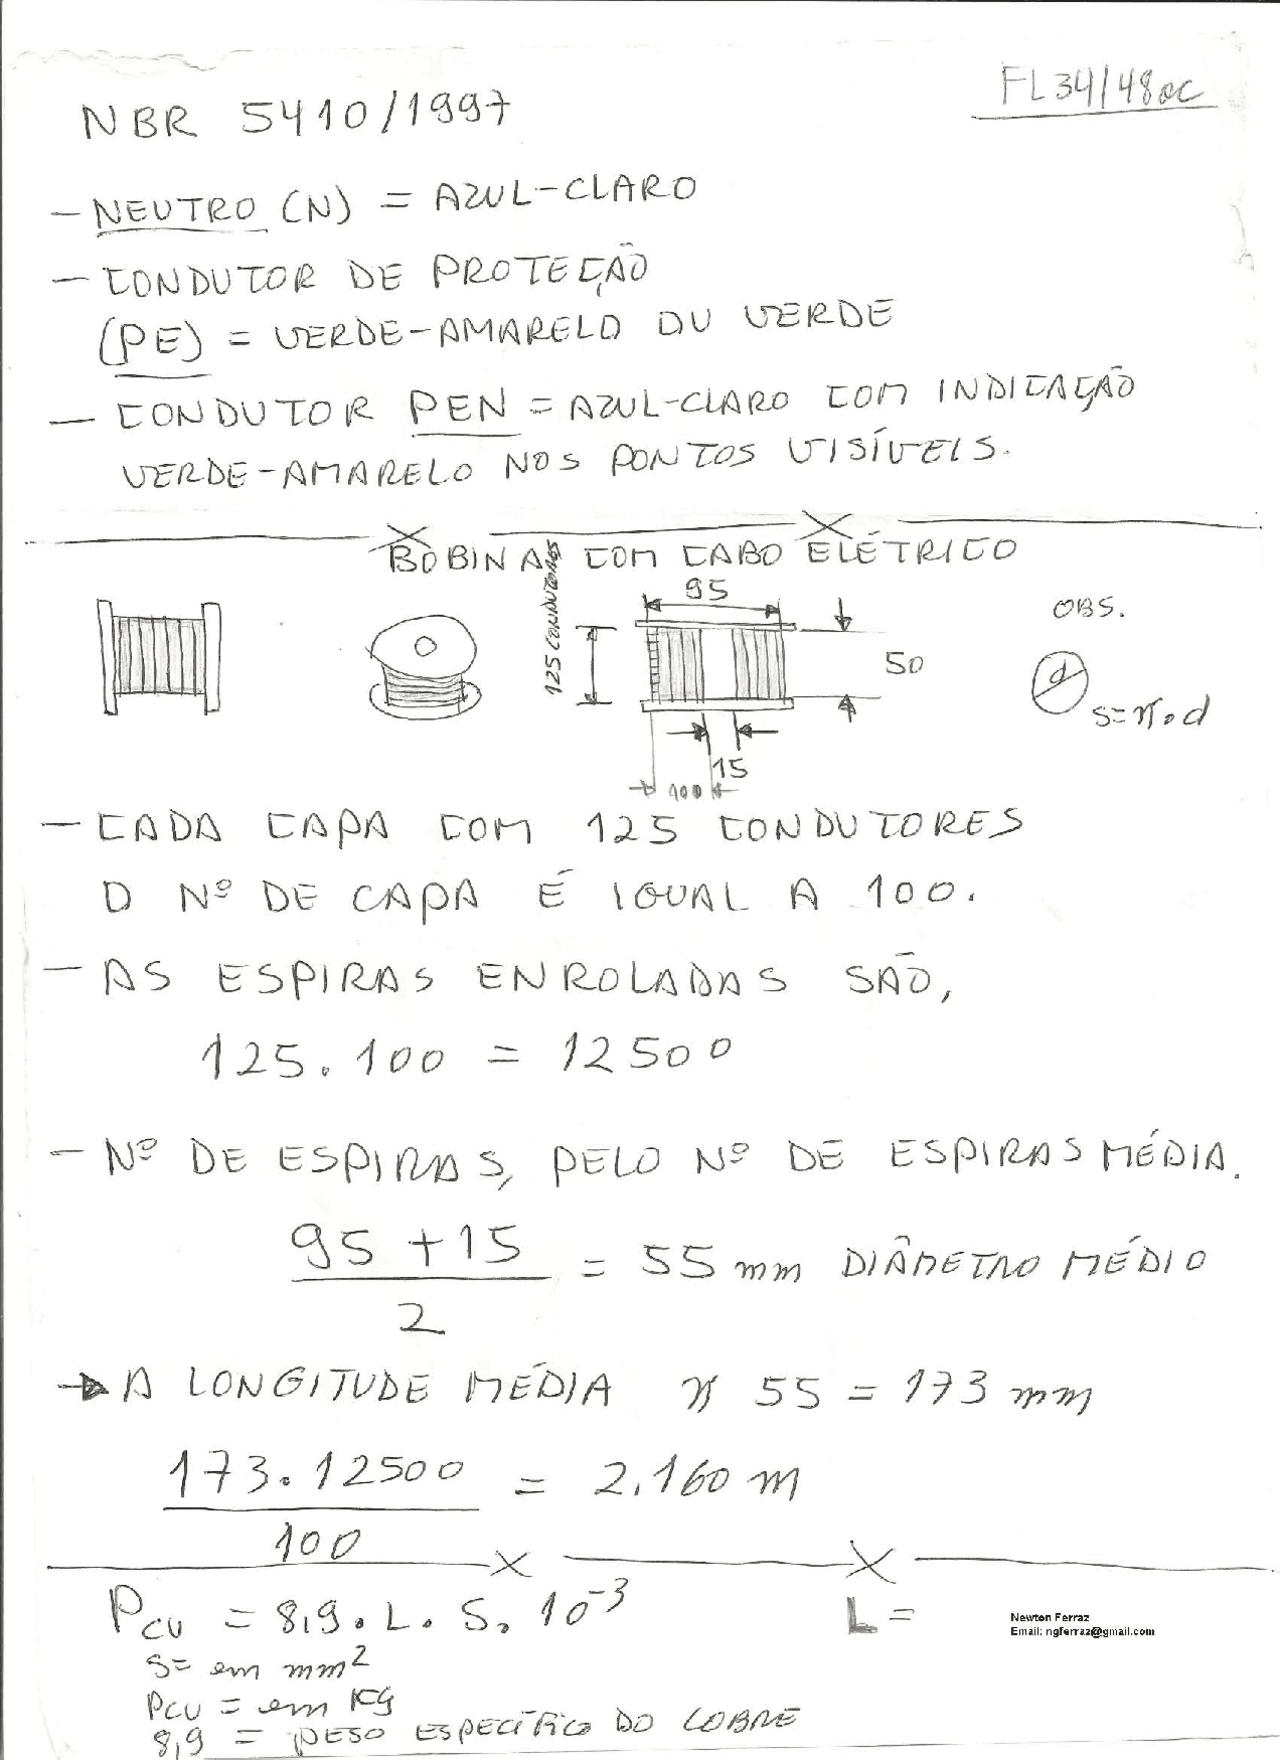 FL34/48
NBR 5410/1997
- NEUTRO (N) = AZUL-CLARO
- CONDUTOR DE PROTEÇÃO
(PE) = VERDE-AMARELO OU VERDE
- CONDUTOR PEN = AZUL-CLARO COM INDICAÇÃO
VERDE-AMARELO NOS PONTOS VISÍVEIS.
BOBINA COM CABO ELÉTRICO
125 CONDUTORES
95
50
15
100
OBS.
d
S=π.d
- CADA CAPA COM 125 CONDUTORES
O Nº DE CAPA É IGUAL A 100.
- AS ESPIRAS ENROLADAS SÃO,
125.100 = 12500
- Nº DE ESPIRAS, PELO Nº DE ESPIRAS MÉDIA.
95 + 15
= 55 mm DIÂMETRO MÉDIO
2
→ A LONGITUDE MÉDIA π 55 = 173 mm
173.12500
= 2.160 m
100
Pcu = 8,9. L. S. 10⁻³
L =
S= em mm²
Pcu = em KG
8,9 = PESO ESPECÍFICO DO COBRE
Newton Ferraz
Email: ngferraz@gmail.com